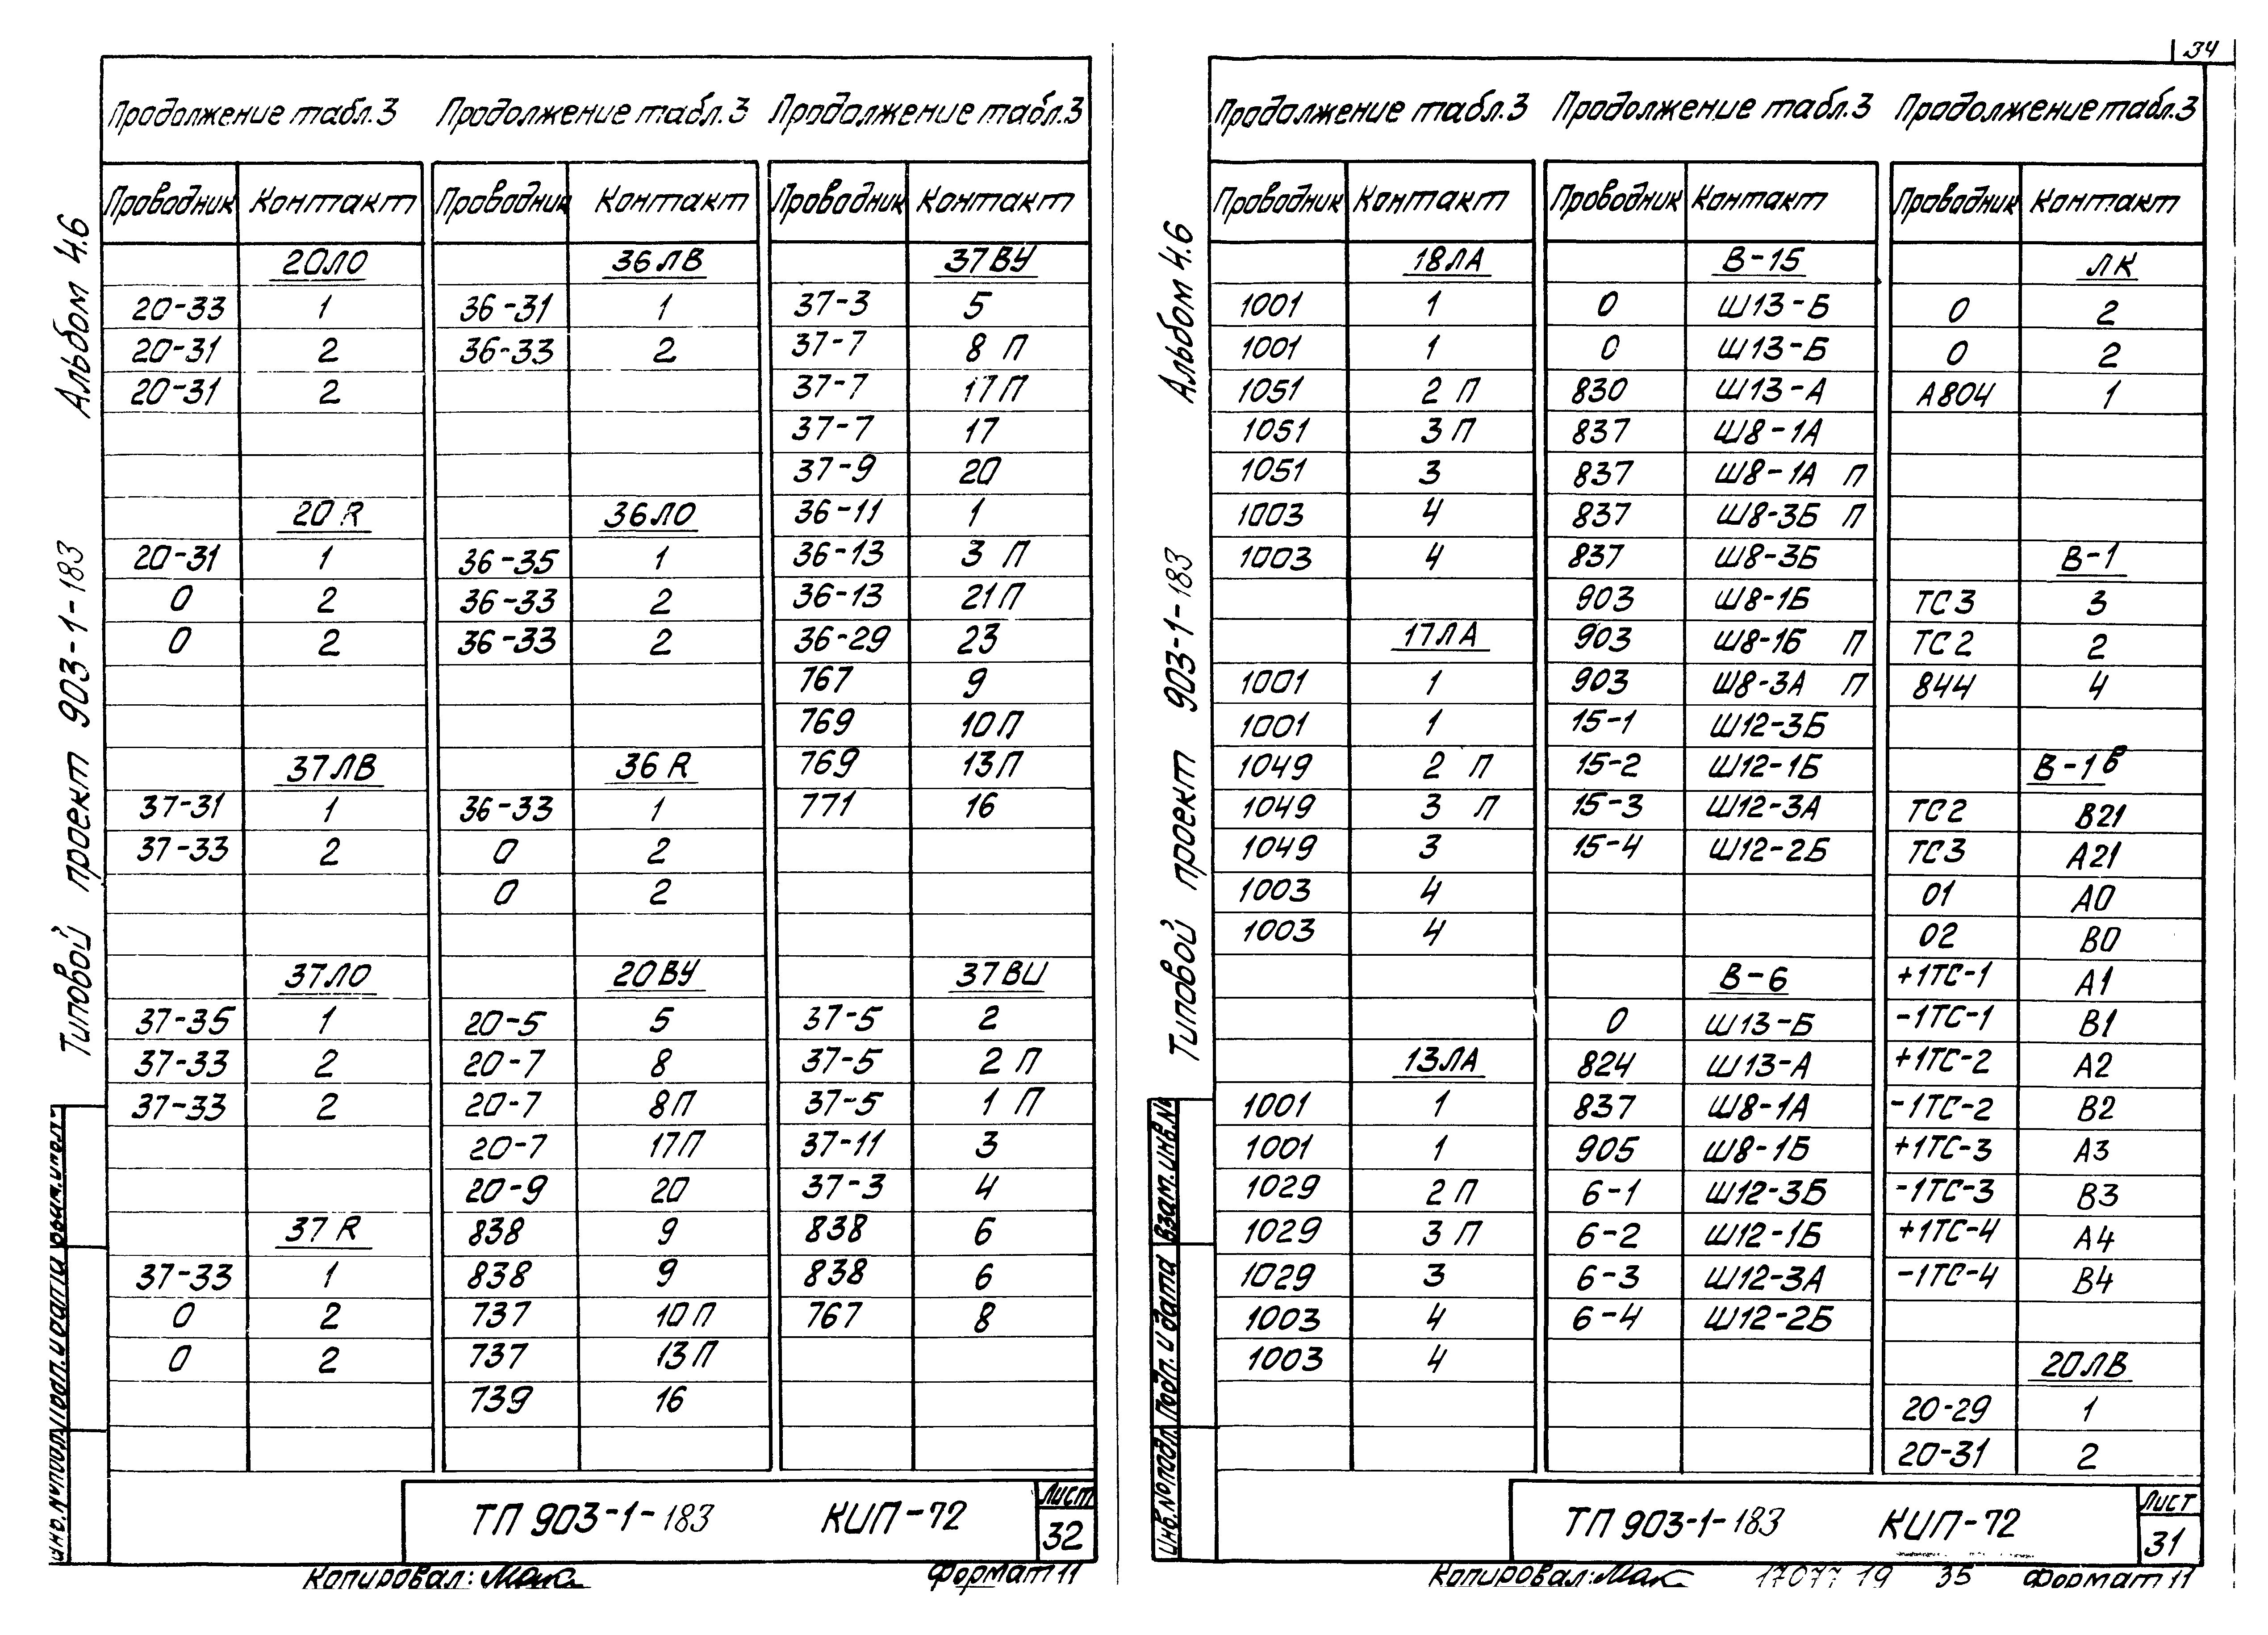 Альбом 4.6
Типовой проект 903-1-183
Продолжение табл.3 Продолжение табл.3 Продолжение табл.3
Проводник Контакт Проводник Контакт Проводник Контакт
20ЛО 36ЛВ 37ВУ
20-33 1 36-31 1 37-3 5
20-31 2 36-33 2 37-7 8 П
20-31 2 37-7 17П
37-7 17
37-9 20
20R 36ЛО 36-11 1
20-31 1 36-35 1 36-13 3 П
0 2 36-33 2 36-13 21П
0 2 36-33 2 36-29 23
767 9
769 10П
37ЛВ 36R 769 13П
37-31 1 36-33 1 771 16
37-33 2 0 2
0 2
37ЛО 20ВУ 37ВЦ
37-35 1 20-5 5 37-5 2
37-33 2 20-7 8 37-5 2 П
37-33 2 20-7 8П 37-5 1 П
20-7 17П 37-11 3
20-9 20 37-3 4
37R 838 9 838 6
37-33 1 838 9 838 6
0 2 737 10П 767 8
0 2 737 13П
739 16
ТП 903-1-183 КИП-72 Лист
32
Копировал: Мак Формат 11
34
Альбом 4.6
Типовой проект 903-1-183
Взам.инв.№
Подп. и дата
Инв.№подл.
Продолжение табл.3 Продолжение табл.3 Продолжение табл.3
Проводник Контакт Проводник Контакт Проводник Контакт
18ЛА В-15 ЛК
1001 1 0 Ш13-Б 0 2
1001 1 0 Ш13-Б 0 2
1051 2 П 830 Ш13-А А804 1
1051 3 П 837 Ш8-1А
1051 3 837 Ш8-1А П
1003 4 837 Ш8-3Б П
1003 4 837 Ш8-3Б В-1
903 Ш8-1Б ТС3 3
17ЛА 903 Ш8-1Б П ТС2 2
1001 1 903 Ш8-3А П 844 4
1001 1 15-1 Ш12-3Б
1049 2 П 15-2 Ш12-1Б В-1в
1049 3 П 15-3 Ш12-3А ТС2 В21
1049 3 15-4 Ш12-2Б ТС3 А21
1003 4 01 А0
1003 4 02 В0
В-6 +1ТС-1 А1
0 Ш13-Б -1ТС-1 В1
13ЛА 824 Ш13-А +1ТС-2 А2
1001 1 837 Ш8-1А -1ТС-2 В2
1001 1 905 Ш8-1Б +1ТС-3 А3
1029 2П 6-1 Ш12-3Б -1ТС-3 В3
1029 3 П 6-2 Ш12-1Б +1ТС-4 А4
1029 3 6-3 Ш12-3А -1ТС-4 В4
1003 4 6-4 Ш12-2Б
1003 4 20ЛВ
20-29 1
20-31 2
ТП 903-1-183 КИП-72 Лист
31
Копировал: Мак 17077 19 35 Формат 11